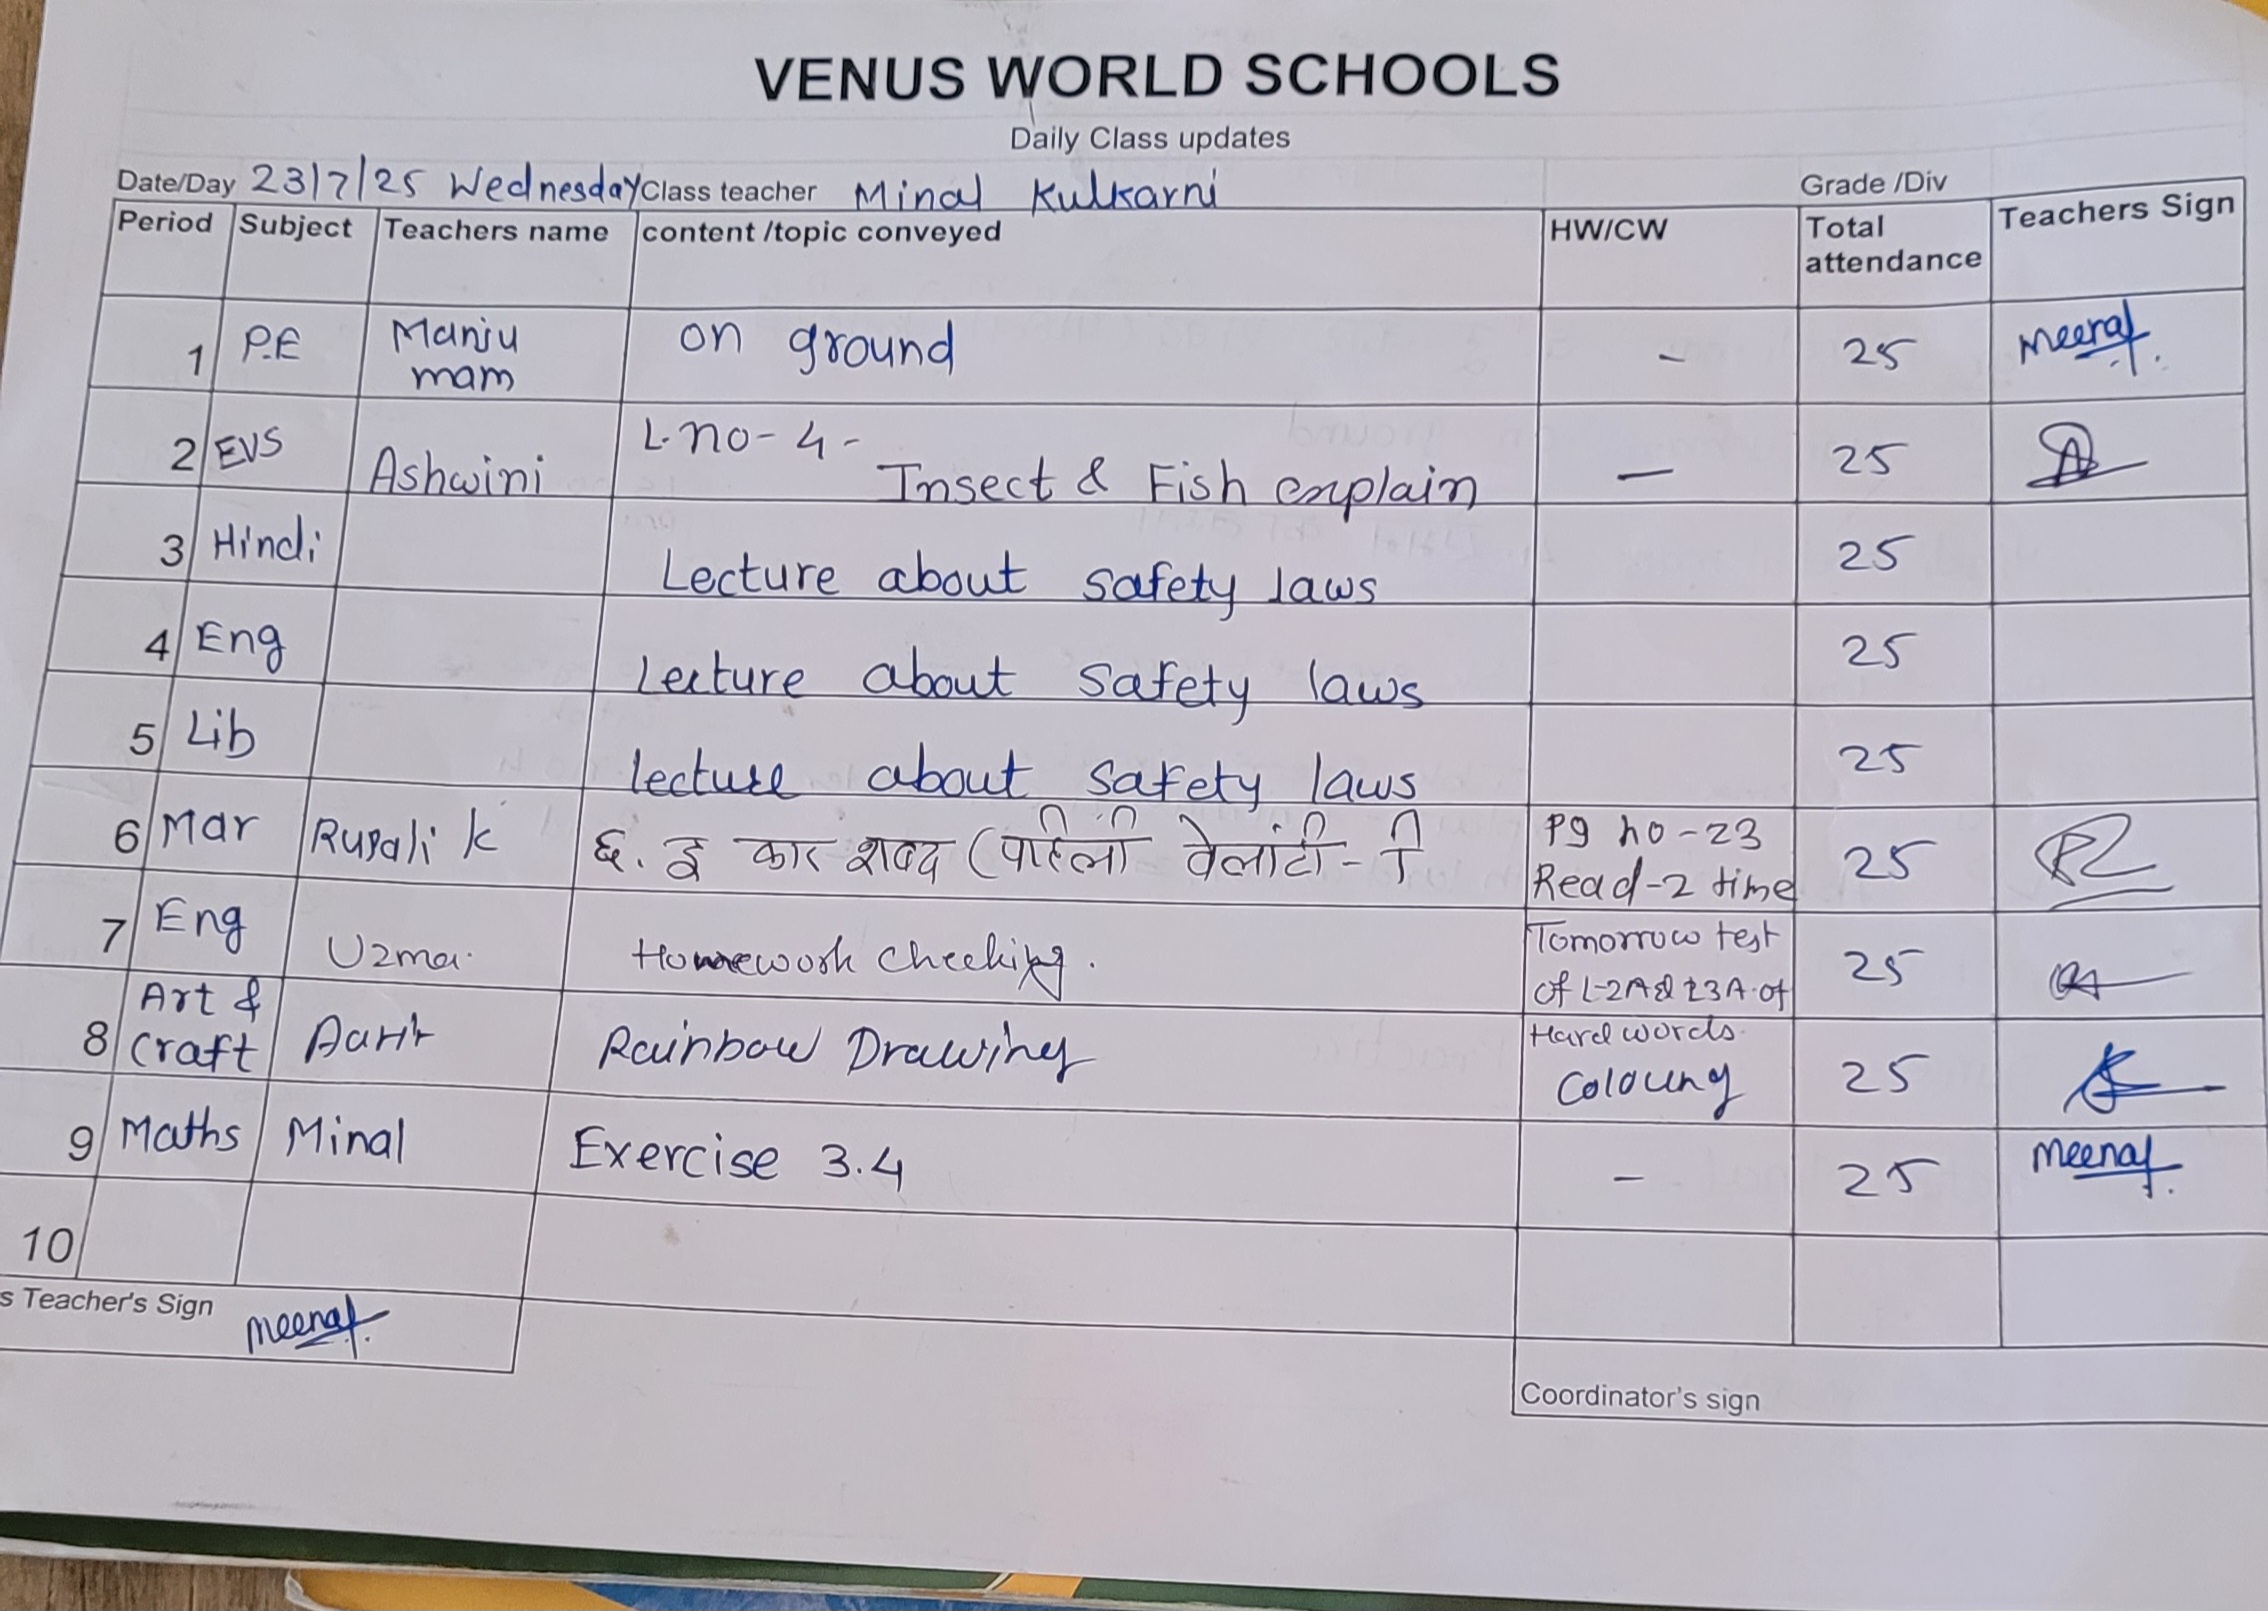 VENUS WORLD SCHOOLS
Daily Class updates
Date/Day 23/7/25 Wednesday Class teacher Minal Kulkarni Grade /Div
Period Subject Teachers name content /topic conveyed HW/CW Total attendance Teachers Sign
1 P.E Manju mam on ground - 25
2 EVS Ashwini L.no-4- Insect & Fish explain - 25
3 Hindi Lecture about safety laws 25
4 Eng Lecture about safety laws 25
5 Lib lecture about safety laws 25
6 Mar Rupali K इ कार शब्द (पहिली वेलांटी - ि Pg no-23 Read-2 time 25
7 Eng Uzma. Homework checking. Tomorrow test of L-2A & L3A of Hard words. 25
8 Art & Craft Rainbow Drawing 25
9 Maths Minal Exercise 3.4 - 25
10
s Teacher's Sign
Coordinator's sign